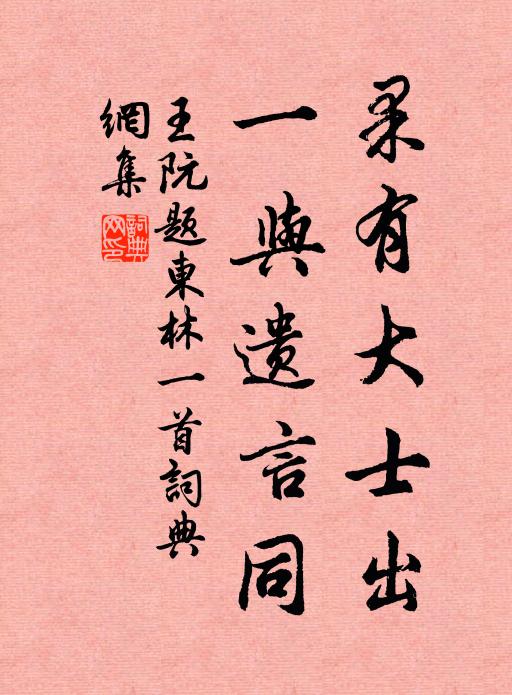 果有大士出
一與遺言同
王阮題東林一首詞典
網集
詞典
网印